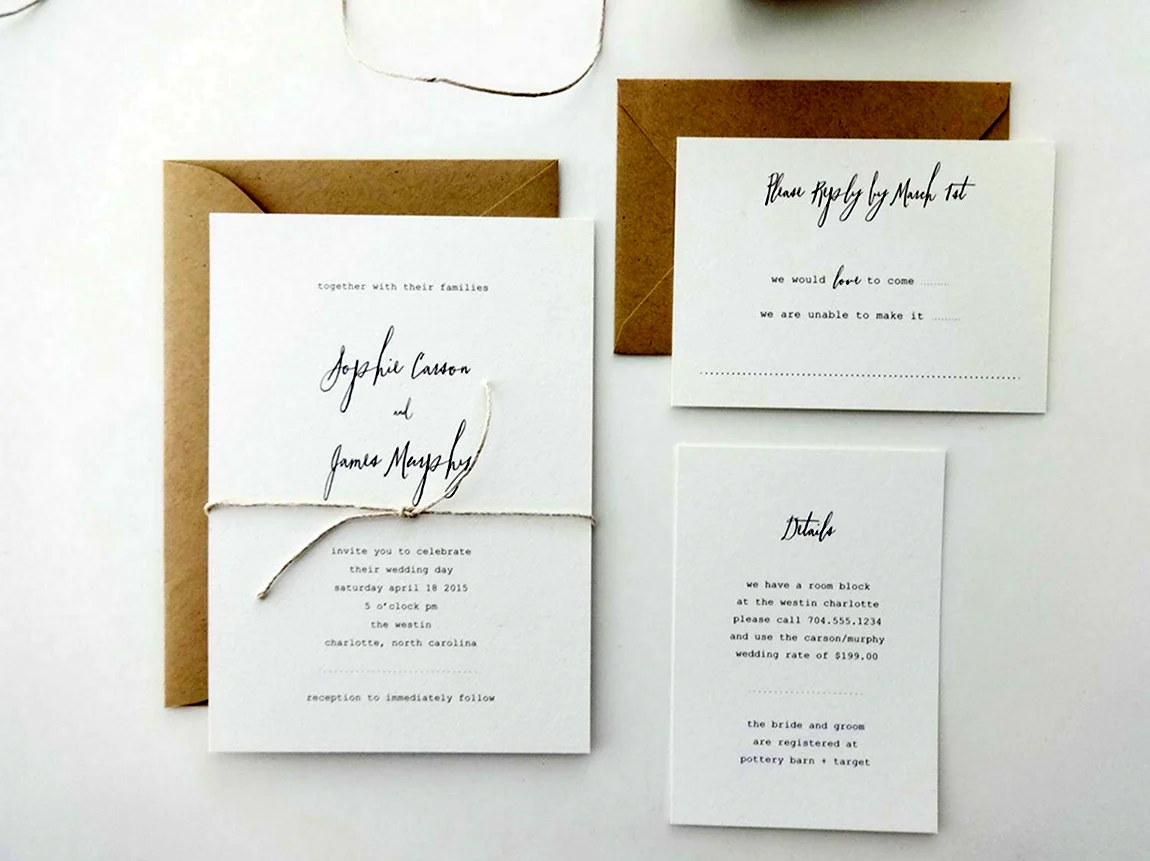 together with their families
Sophie Carson
and
James Murphy
invite you to celebrate
their wedding day
saturday april 18 2015
5 o'clock pm
the westin
charlotte, north carolina
reception to immediately follow
Please Reply by March 1st
we would love to come
we are unable to make it
Details
we have a room block
at the westin charlotte
please call 704.555.1234
and use the carson/murphy
wedding rate of $199.00
the bride and groom
are registered at
pottery barn + target